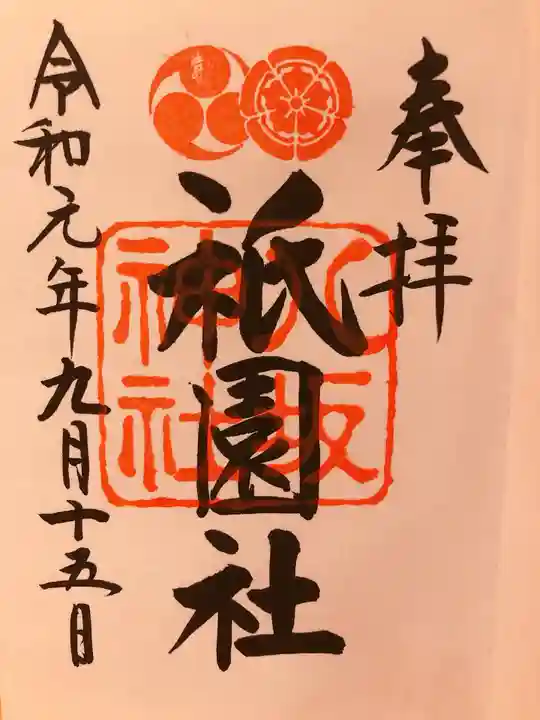 奉拝
八坂
神社
祇園社
令和元年九月十五日